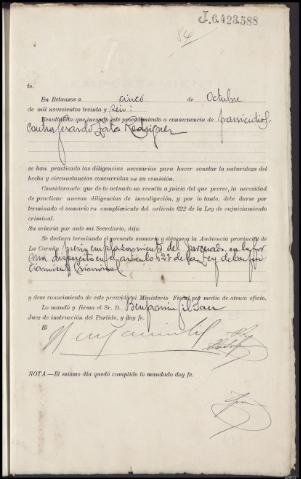 J.6.423.588
84
to.
En Betanzos a cinco de Octubre
de mil novecientos treinta y seis:
Resultando que incoado este procedimiento a consecuencia de parricidio
contra Gerardo Zota Rodriguez
se han practicado las diligencias necesarias para hacer constar la naturaleza del
hecho y circunstancias concurridas en su comisión.
Considerando que de lo actuado no resulta a juicio del que provee, la necesidad
de practicar nuevas diligencias de investigación, y por lo tanto, debe darse por
terminado el sumario en cumplimiento del artículo 622 de la Ley de enjuiciamiento
criminal.
Su señoría por ante mi Secretario, dijo:
Se declara terminado el presente sumario y elévese a la Audiencia provincial de
La Coruña previo emplazamiento del procesado, en la for
ma dispuesta en el artículo 623 de la Ley de
Criminal
y dese conocimiento de este proveído al Ministerio Fiscal por medio de atento oficio.
Lo mandó y firma el Sr. D. Benjamin
Juez de instrucción del Partido, y doy fe.
El
NOTA.—El mismo día quedó cumplido lo mandado doy fe.